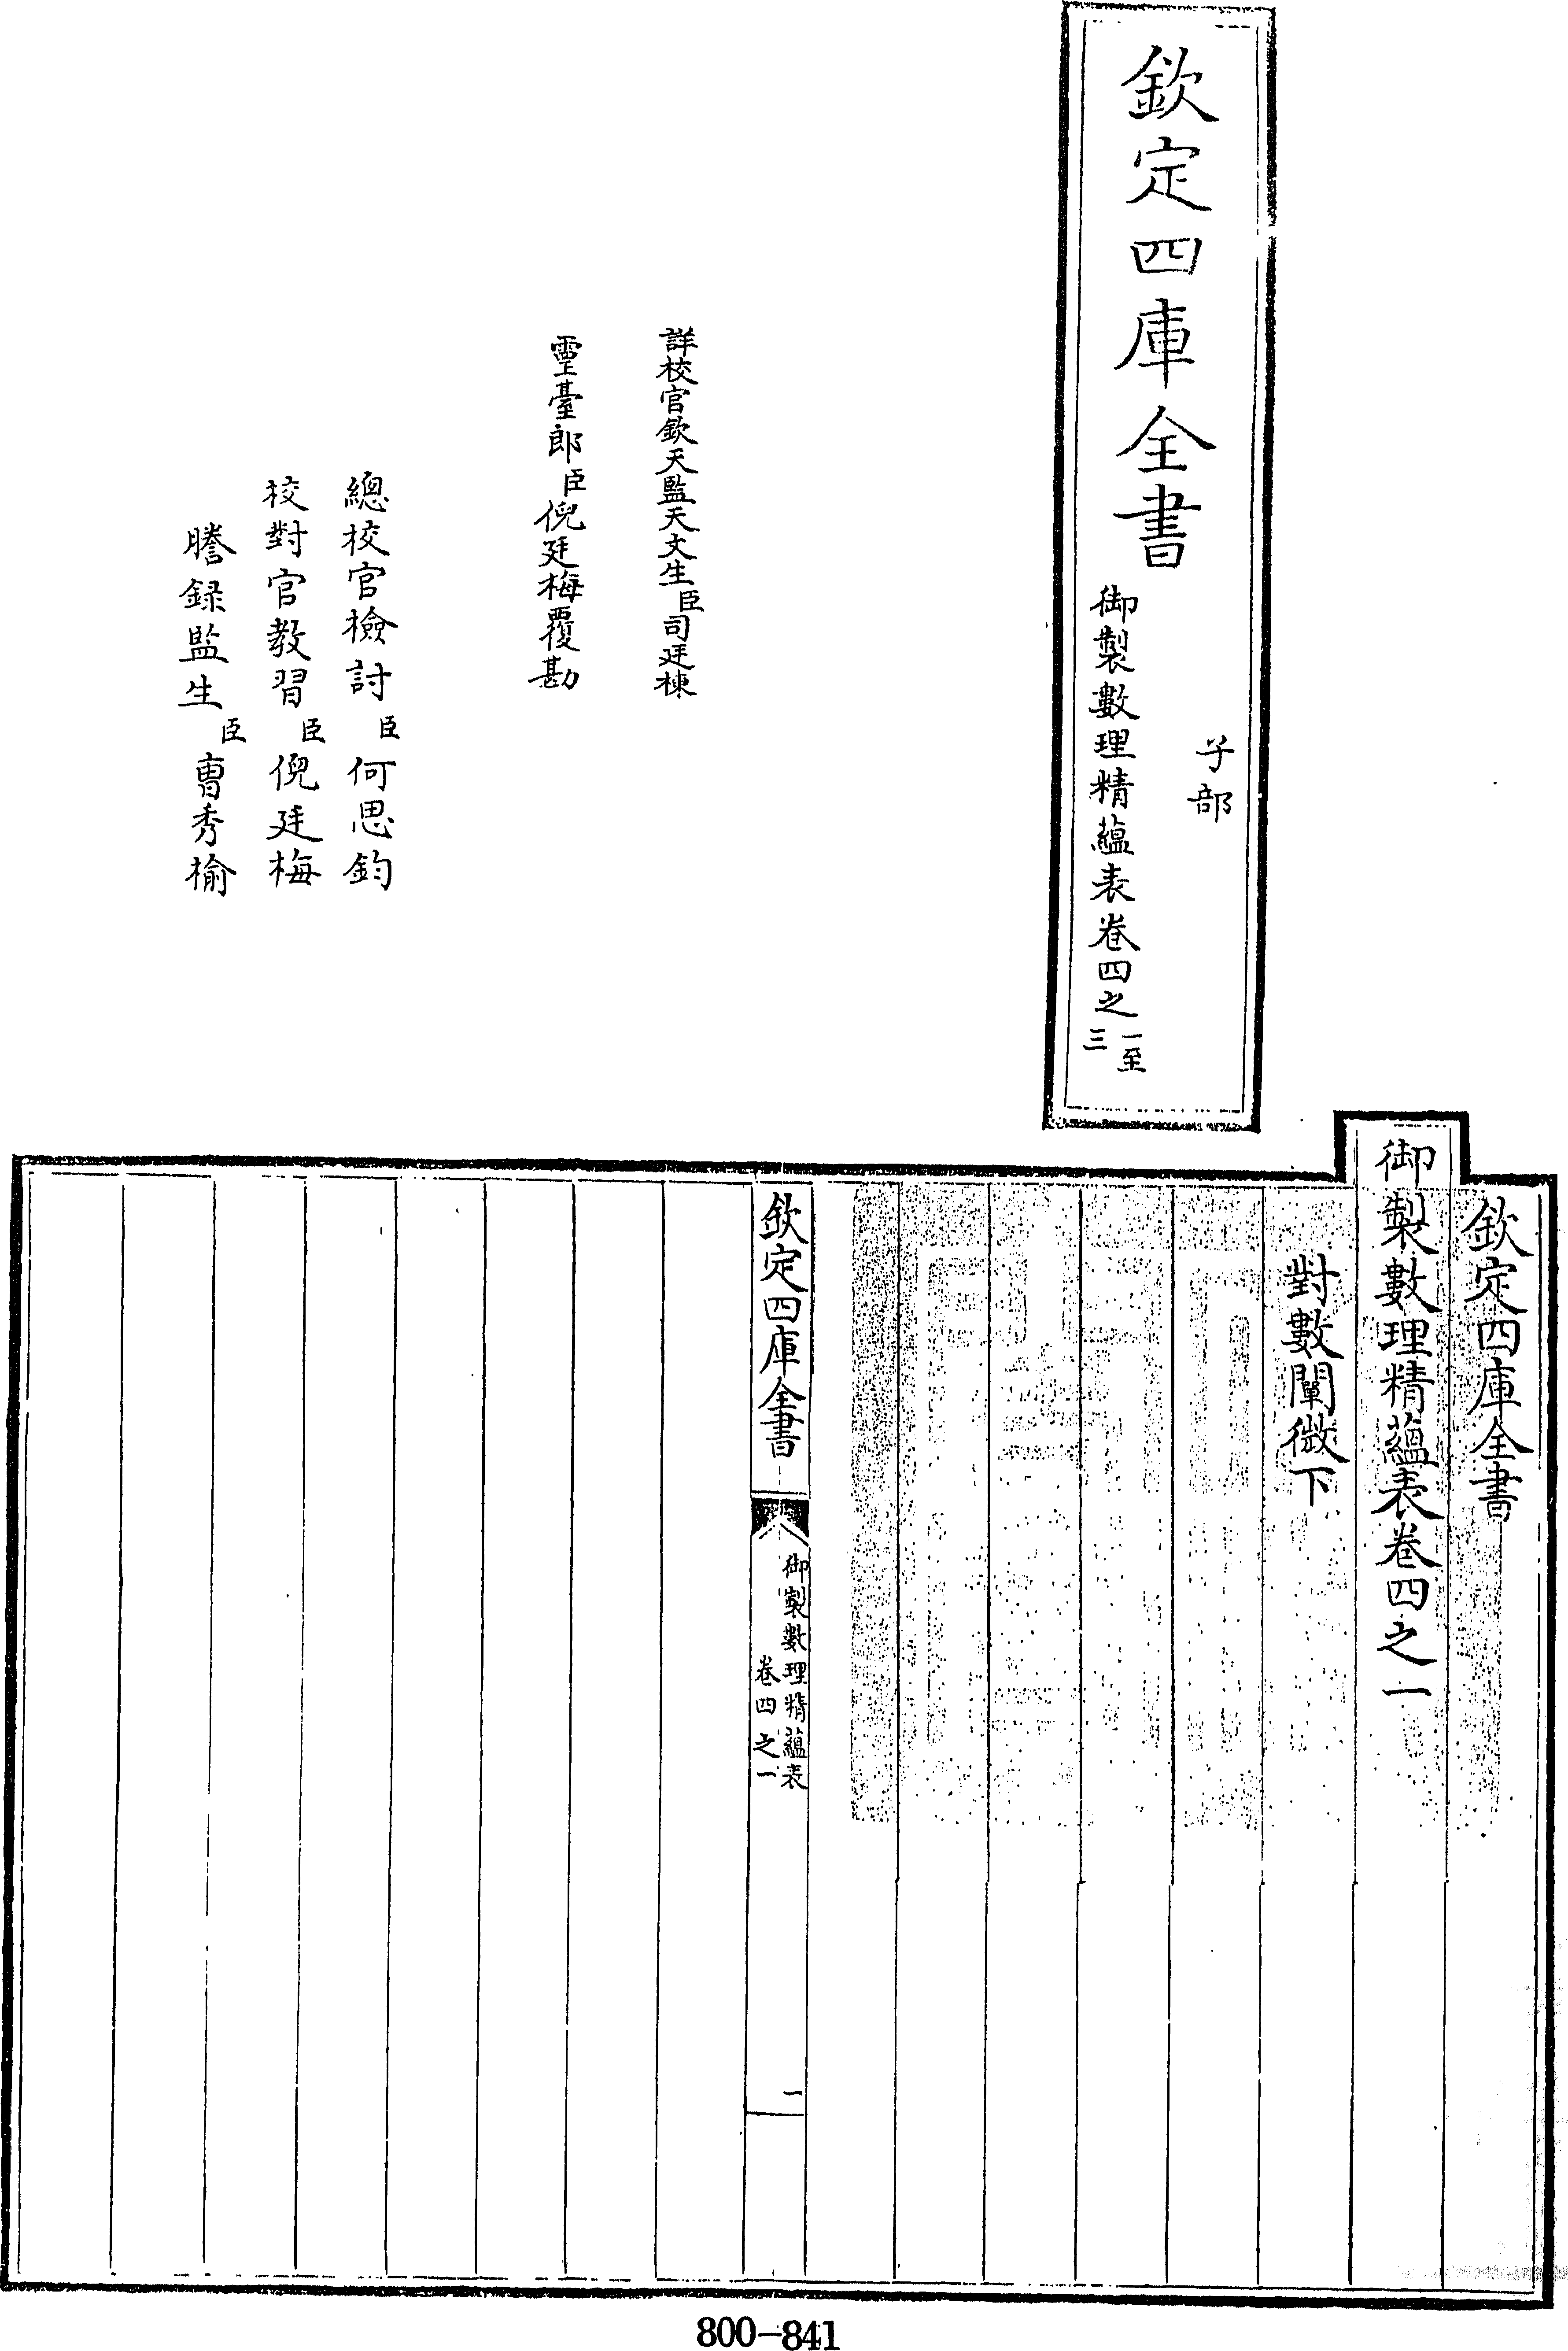 欽定四庫全書
子部
御製數理精蘊表卷四之一至三
詳校官欽天監天文生臣司廷棟
靈臺郎臣倪廷梅覆勘
總校官檢討臣何思鈞
校對官教習臣倪廷梅
謄録監生臣曹秀榆
欽定四庫全書
御製數理精蘊表卷四之一
對數闡微下
欽定四庫全書
御製數理精蘊表
卷四之一
一
800-841